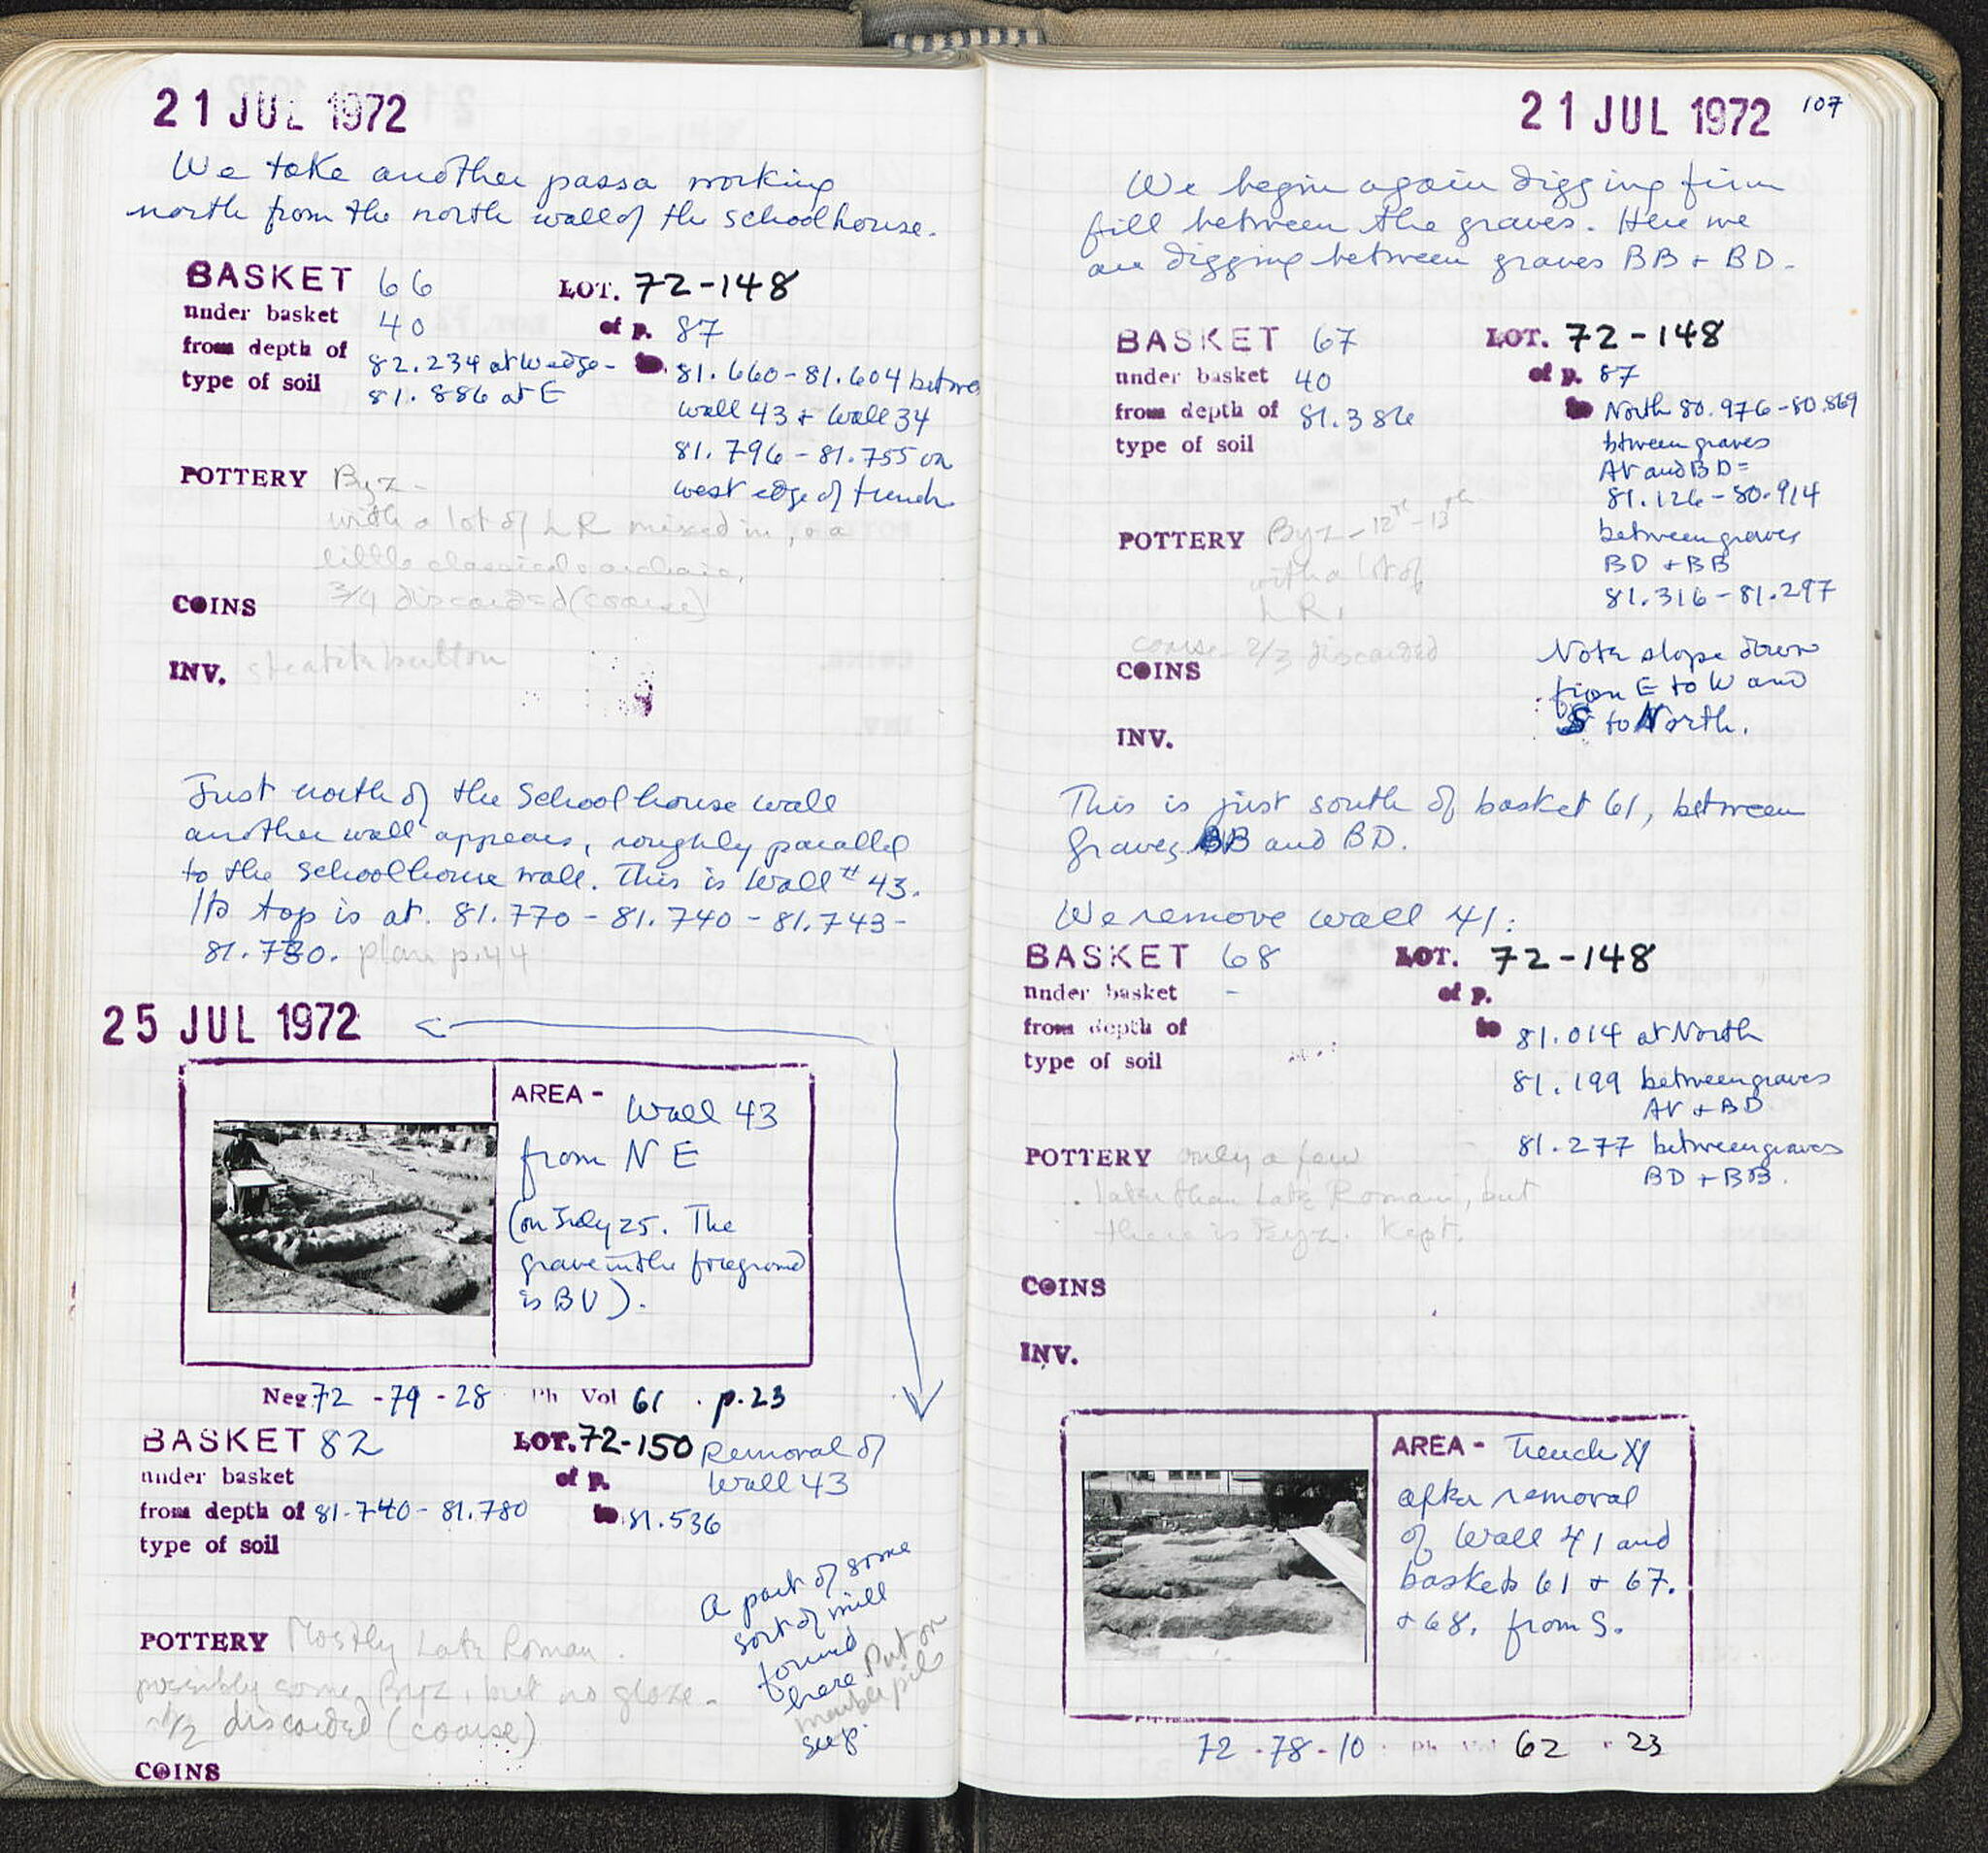 21 JUL 1972
We take another passa working
north from the north wall of the schoolhouse.
BASKET 66 LOT. 72-148
under basket 40 of p. 87
from depth of 82.234 at W edge - to 81.660-81.604 betwe
type of soil 81.886 at E
wall 43 + Wall 34
81.796-81.755 on
west edge of trench
POTTERY Byz -
with a lot of LR mixed in, + a
little classical + archaic,
3/4 discarded (coarse)
COINS
INV. steatite button
Just north of the Schoolhouse wall
another wall appears, roughly parallel
to the schoolhouse wall. This is Wall # 43.
Its top is at 81.770 - 81.740 - 81.743 -
81.780. plan p. 44
25 JUL 1972
AREA - Wall 43
from NE
(on July 25. The
grave in the foreground
is BU).
Neg 72 -79 -28 Ph Vol 61 . p. 23
BASKET 82 LOT. 72-150 Removal of
Wall 43
under basket of p.
from depth of 81.740-81.780 to 81.536
type of soil
A part of some
sort of mill
found
here Put on
marble pile
POTTERY Mostly Late Roman.
possibly some Byz, but no glaze -
~1/2 discarded (coarse)
COINS
21 JUL 1972 107
We begin again digging firm
fill between the graves. Here we
are digging between graves BB + BD -
BASKET 67 LOT. 72-148
under basket 40 of p. 87
from depth of 81.386 to North 80.976-80.869
type of soil
between graves
AV and BD =
81.126-80.914
between graves
BD + BB
81.316-81.297
POTTERY Byz - 12th-13th
with a lot of
LR,
coarse 2/3 discarded
COINS
INV.
Note slope down
from E to W and
S to North.
This is just south of basket 61, between
Graves BB and BD.
We remove wall 41:
BASKET 68 LOT. 72-148
under basket - of p.
from depth of to 81.014 at North
type of soil
81.199 between graves
AV + BD
81.277 between graves
BD + BB.
POTTERY only a few
later than Late Roman, but
there is Byz. Kept.
COINS
INV.
AREA - Trench
after removal
of Wall 41 and
baskets 61 + 67.
+ 68. from S.
72 -78 -10 Ph Vol 62 23